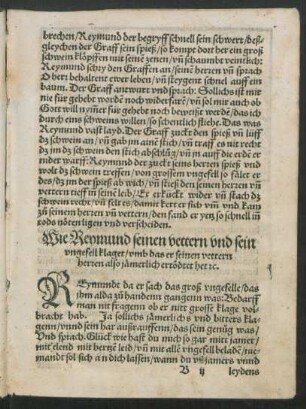 brechen/Reymund der begryff schnell sein schwert/desz
gleychen der Graff sein spieß/so kompt dort her ein groß
schwein klöpffen mit seinē zenen/vñ schaumbt veintlich:
Reymund schry den Graffen an/seinē herren vñ sprach
O herr behaltent ewer leben/vñ steygent schnel auff ein
baum. Der Graff antwurt vñd sprach: Sollichs ist mir
nie für gehebt wordē noch widerfarē/vñ sol mir auch ob
Gott will nymer für gehebt noch beweißt werdē/das ich
durch eins schweins willen/so schentlich fliehe. Das was
Reymund vast layd. Der Graff zuckt den spieß vñ lüff
dz schwein an/vñ gab im ainē stich/vñ traff es nit recht
dz im dz schwein den stich abschlůg/vñ in auff die erdē er
nider warff: Reymund der zuckt seins herren spieß vnd
wolt dz schwein treffen/von grossem vngefell so fäler er
des/dz jm der spieß ab wich/vñ stieß den seinen herren vñ
vettern tieff in seinē leib/Er ruckt wider vñ stach dz
schwein recht/vñ felt es/damit kerter sich vm̄ vnd kam
zů seinem herren vñ vettern/den fand er yetz so schnell in
tods nötten ligen vnd verscheiden.
Wie Reymund seinen vettern vnd sein
vngefell klaget/vmb das er seinen vettern
herren also jämerlich ertödtet het ꝛc.
REymundt da er sach das groß vngefelle/das
ihm alda zů handenn gangenn was: Bedarff
man nit fragenn ob er nitt grosse klage vol-
bracht hab. Ja sollichs jämerlichs vnd bitters kla-
genn/vnnd sein har außrauffenn/das sein genůg was/
Vnd sprach: Glück wie hast du mich so gar mitt jamer/
mit elend mit hertzē leid/vñ mit allē vngefell beladē/nie-
mandt sol sich an dich lassen/wann du vil jamers vnnd
B ij leydens